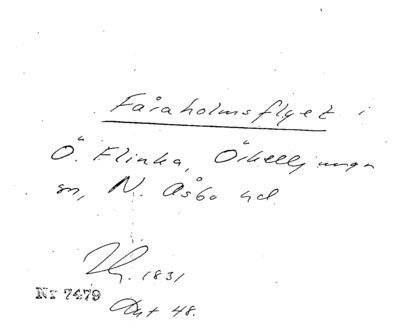 Fåraholmsflyet i
Ö. Flinka, Örkelljunga
sn, N. Åsbo hd
1831
Nr 7479
Akt 48.